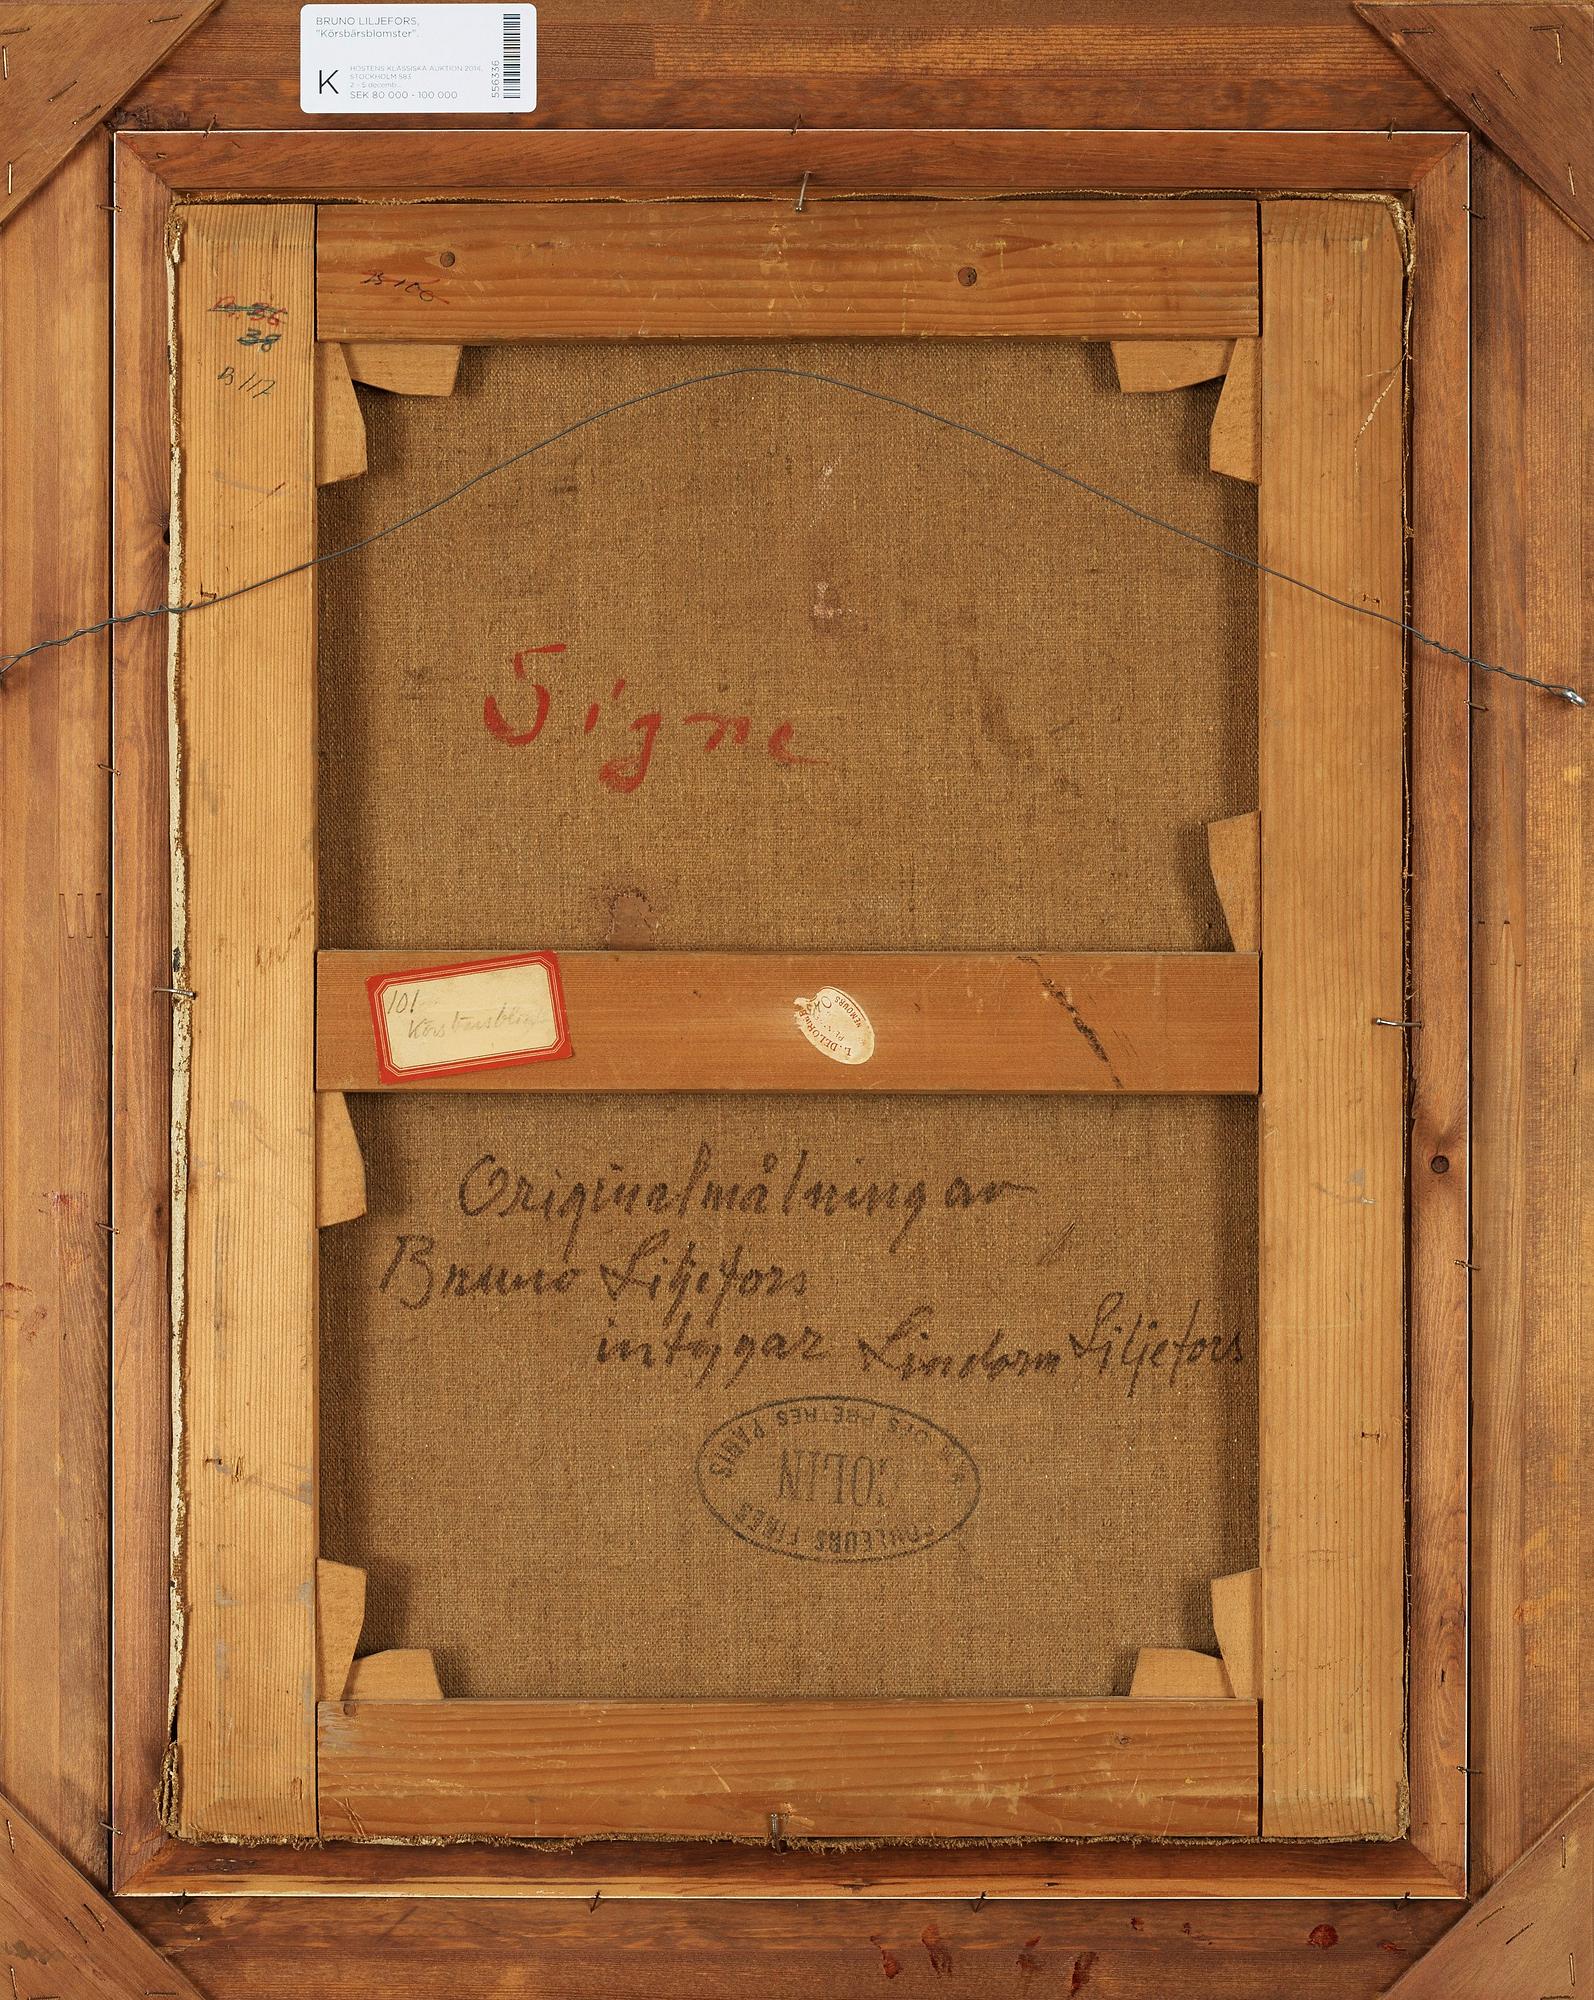 BRUNO LILJEFORS,
"Körsbärsblomster".
K
HÖSTENS KLASSISKA AUKTION 2014,
STOCKHOLM 583
2 - 5 decemb...
SEK 80 000 - 100 000
556336
B 106
38
B 117
Signe
101
L. DELORME
NEMOURS
Originalmålning av
Bruno Liljefors
intygar Lindorm Liljefors
COULEURS FINES
COLIN
R. DES PRETRES PARIS